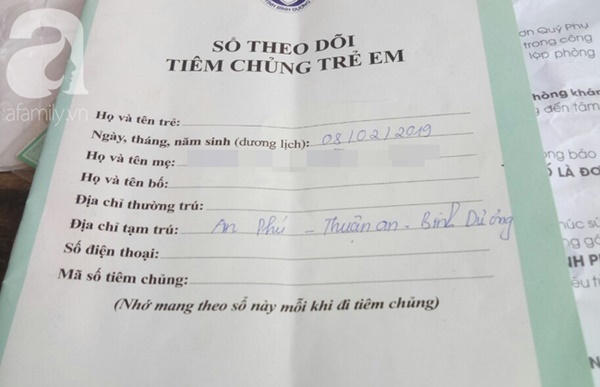 TỈNH BÌNH DƯƠNG
SỔ THEO DÕI
TIÊM CHỦNG TRẺ EM
Họ và tên trẻ:
Ngày, tháng, năm sinh (dương lịch): 08/02/2019
Họ và tên mẹ:
Họ và tên bố:
Địa chỉ thường trú:
Địa chỉ tạm trú: An Phú - Thuận an - Bình Dương
Số điện thoại:
Mã số tiêm chủng:
(Nhớ mang theo sổ này mỗi khi đi tiêm chủng)
a
afamily.vn
Quý Phụ
trong công
lớp phòng
hòng khám
đến tâm
ng bảo
LÀ ĐƠ
húc sứ
ng gó
NH P